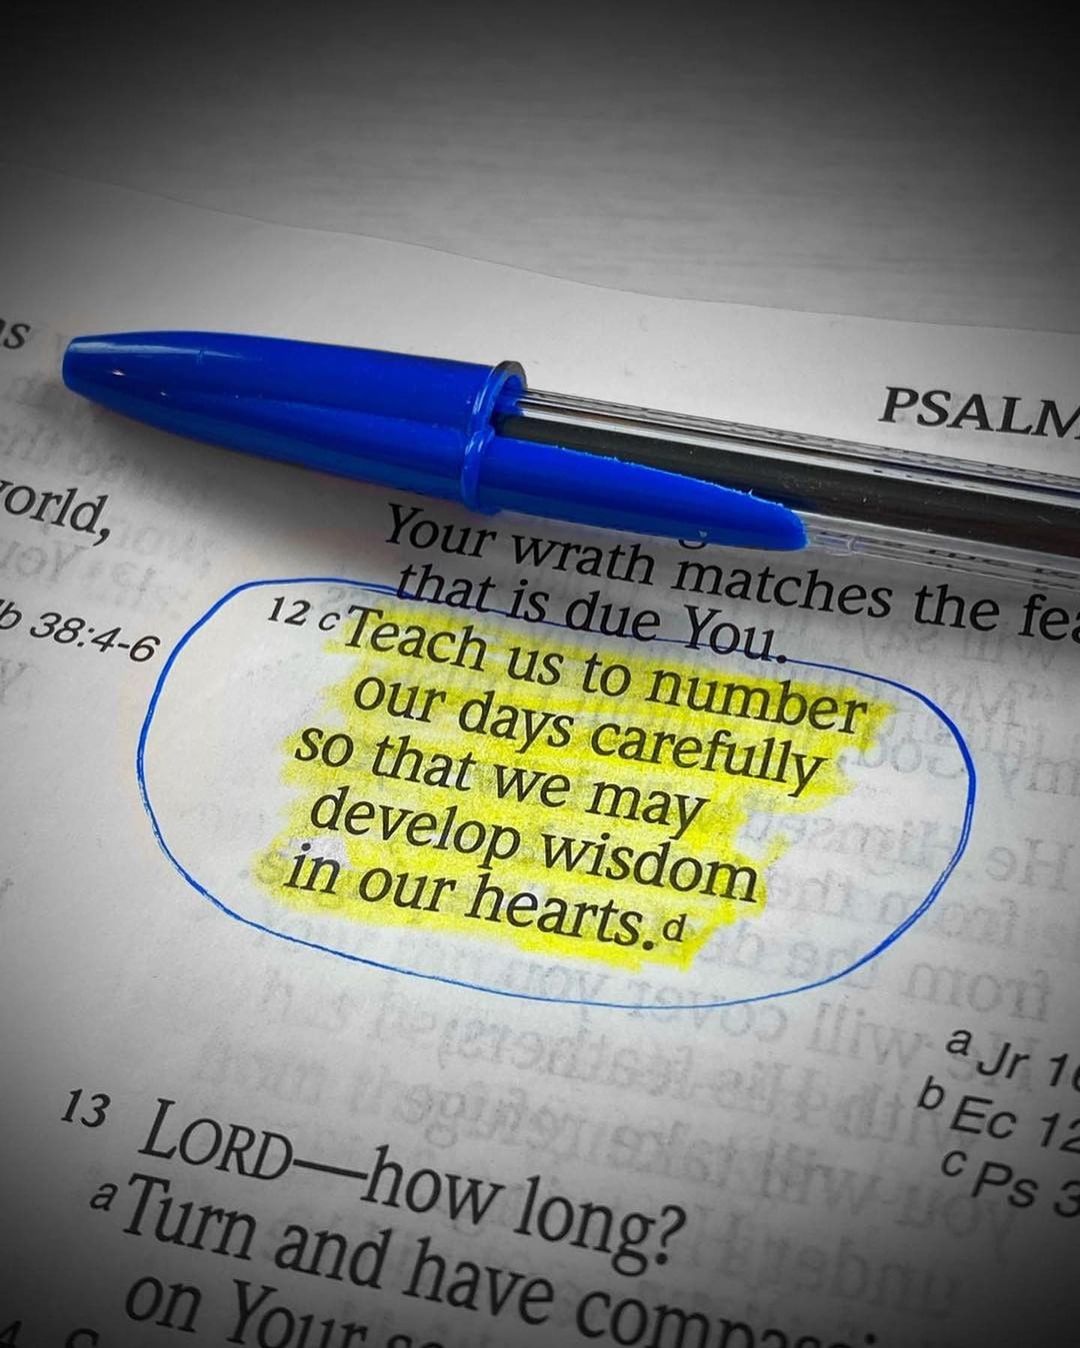 PSALM
orld,
Your wrath matches the
that is due You.
b 38:4-6
12 c Teach us to number
our days carefully
so that we may
develop wisdom
in our hearts. d
a Jr
b Ec 12
c Ps 3
13 LORD—how long?
a Turn and have
on Your